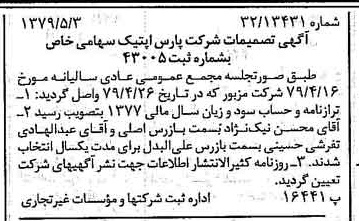 شماره ۳۲/۱۳۴۳۱ ۱۳۷۹/۵/۳
آگهی تصمیمات شرکت پارس اپتیک سهامی خاص
بشماره ثبت ۴۳۰۰۵
طبق صورتجلسه مجمع عمومی عادی سالیانه مورخ
۷۹/۴/۱۶ شرکت مزبور که در تاریخ ۷۹/۴/۲۶ واصل گردید: ۱ـ
ترازنامه و حساب سود و زیان سال مالی ۱۳۷۷ بتصویب رسید ۲ـ
آقای محسن نیک‌نژاد بسمت بازرس اصلی و آقای عبدالهادی
تفرشی حسینی بسمت بازرس علی‌البدل برای مدت یکسال انتخاب
شدند. ۳ـ روزنامه کثیرالانتشار اطلاعات جهت نشر آگهیهای شرکت
تعیین گردید.
پ ۱۶۴۴۱ اداره ثبت شرکتها و مؤسسات غیرتجاری